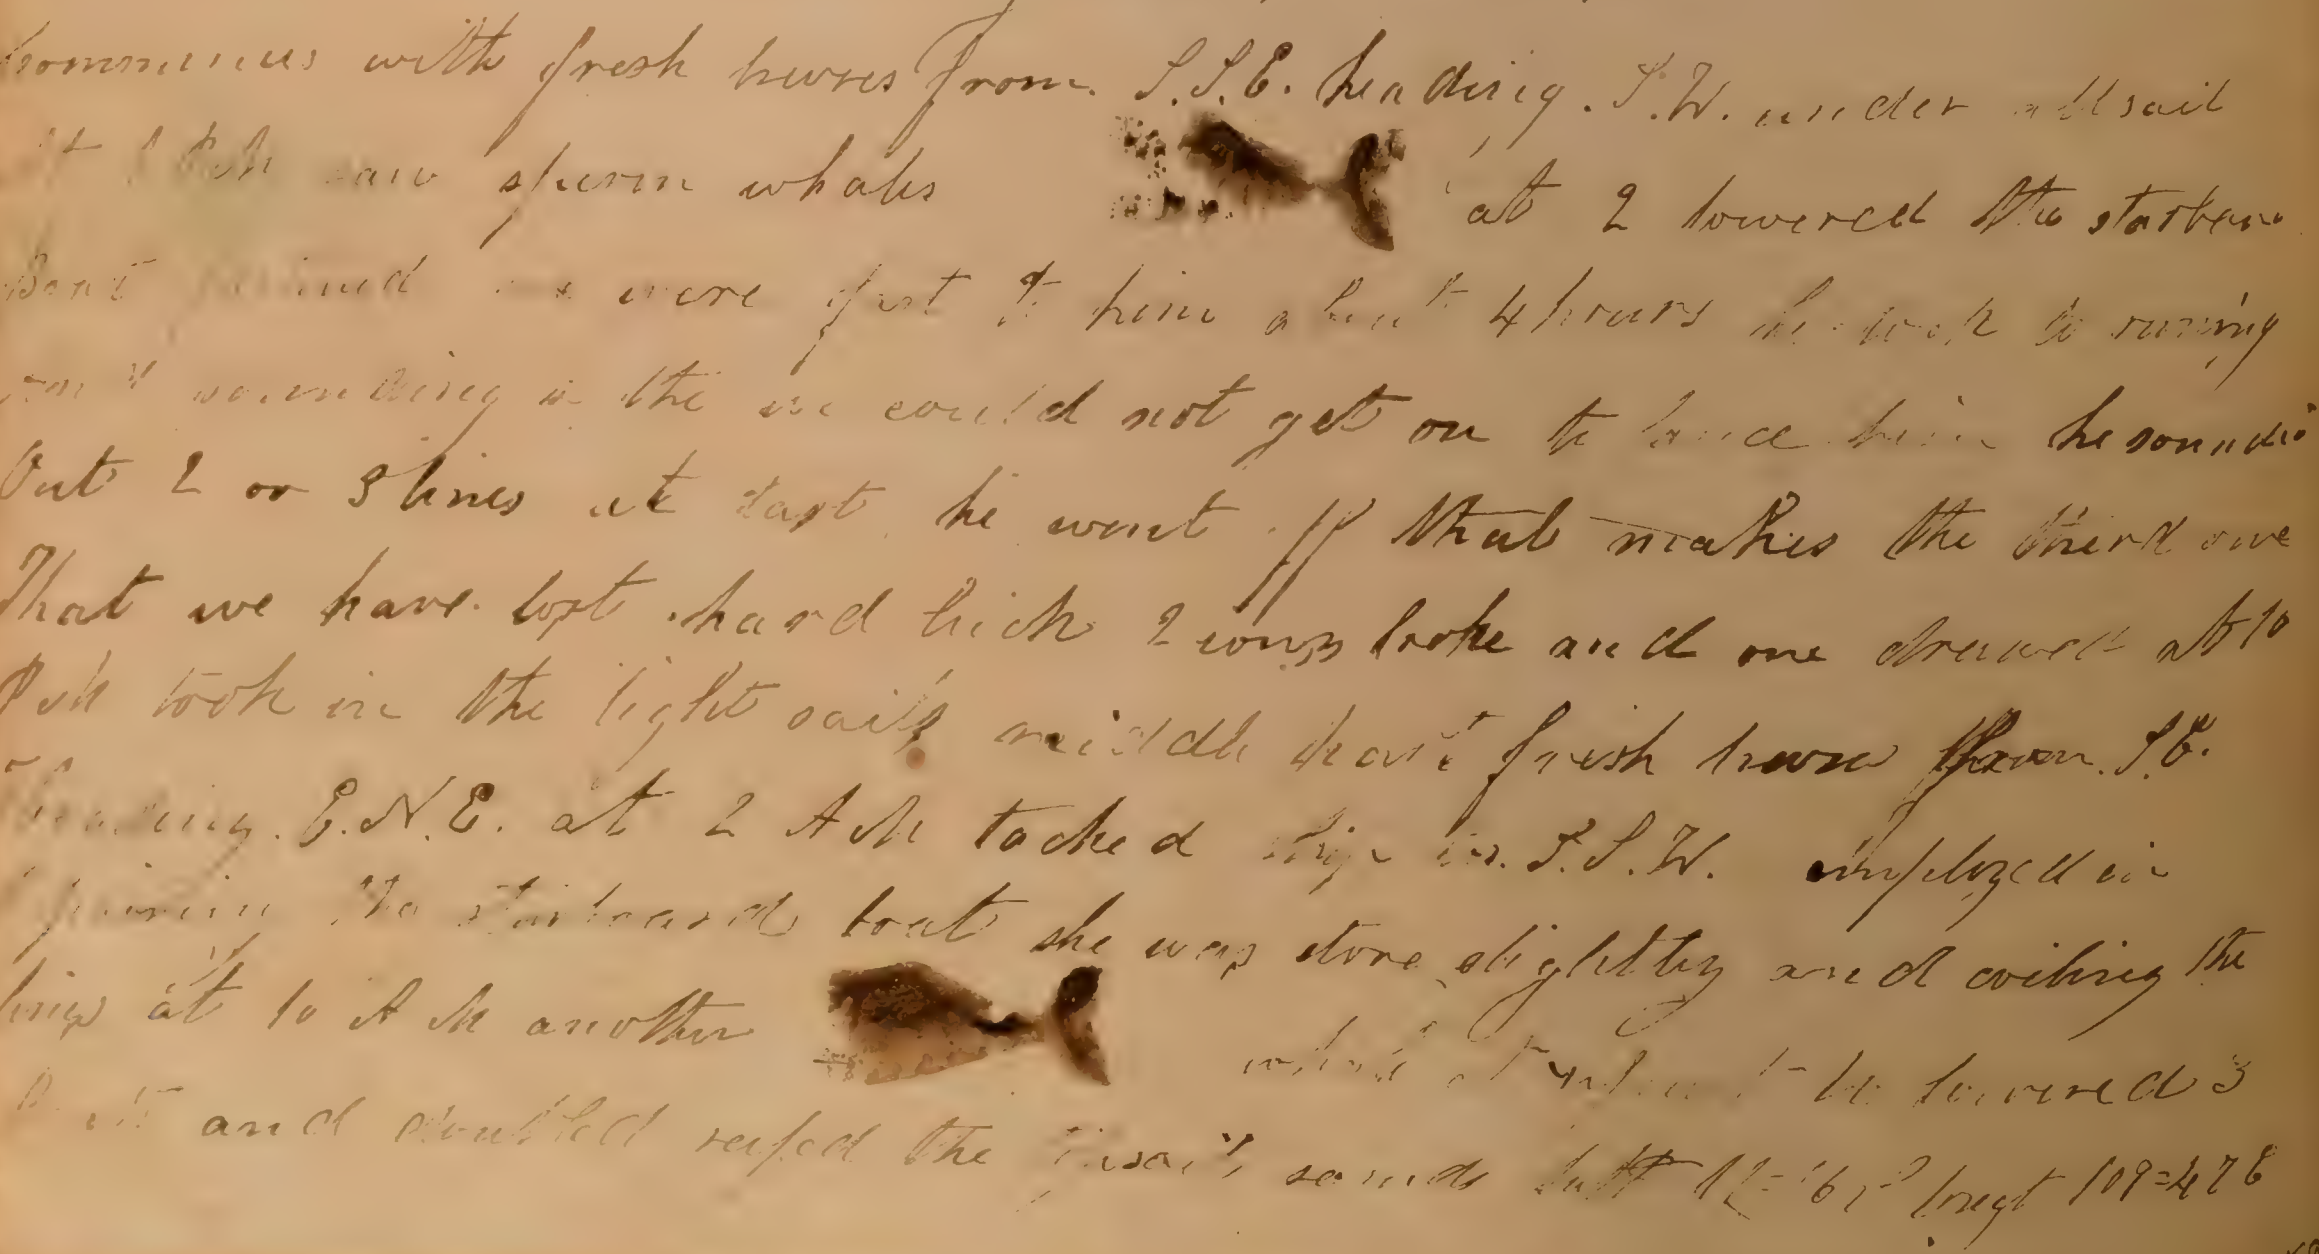 Commences with fresh breeses from. S.S.E. heading. S.W. under all sail
saw sperm whales at 2 lowered the starboard
Boat we were fast to him about 4 hours he took to runing
and sounding so the we could not get on to lance him he sounded
Out 2 or 3 lines at last he went off that makes the third one
That we have lost hard luck 2 irons broke and one drawed at 10
P M took in the light sails middle part fresh breese from. S.E.
heading. E.N.E. at 2 A M tacked ship in. S.S.W. employed in
the starboard boat she was stove slightly and coiling the
lines at 10 A M another whale lowered 3
and doubled reefed the sounds latt longt 109=47 E